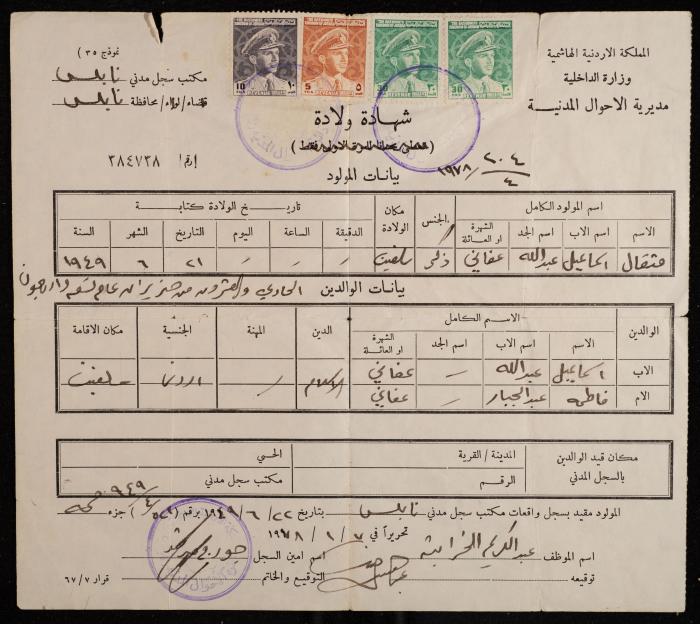 المملكة الاردنية الهاشمية
وزارة الداخلية
مديرية الاحوال المدنية
نموذج (٣٥)
مكتب سجل مدني نابلس
قضاء/لواء/محافظة نابلس
١٠ 10
٥ 5
٣٠ 30
٣٠ 30
شهادة ولادة
رقم/ ٣٨٤٧٣٨
٢٠٤/٤/١٩٧٨
بيانات المولود
اسم المولود الكامل الجنس مكان الولادة تاريخ الولادة كتابة
الاسم اسم الاب اسم الجد الشهرة او العائلة الدقيقة الساعة اليوم التاريخ الشهر السنة
مثقال اسماعيل عبدالله عفاني ذكر سلفيت – – – ٢١ ٦ ١٩٤٩
بيانات الوالدين الحادي والعشرون من حزيران عام تسعه واربعون
الوالدين الاسم الكامل الدين المهنة الجنسية مكان الاقامة
الاسم اسم الاب اسم الجد الشهرة او العائلة
الاب اسماعيل عبدالله – عفاني الاسلام / اردني سلفيت
الام فاطمه عبدالجبار – عفاني
مكان قيد الوالدين بالسجل المدني المدينة / القرية الحسي
الرقم مكتب سجل مدني
المولود مقيد بسجل واقعات مكتب سجل مدني نابلس بتاريخ ٢٢/٦/١٩٤٩ برقم جزء
تحريراً في ٧/١/١٩٧٨
اسم الموظف عبدالكريم اسم امين السجل
توقيعه التوقيع والخاتم
قرار ٦٧/٧